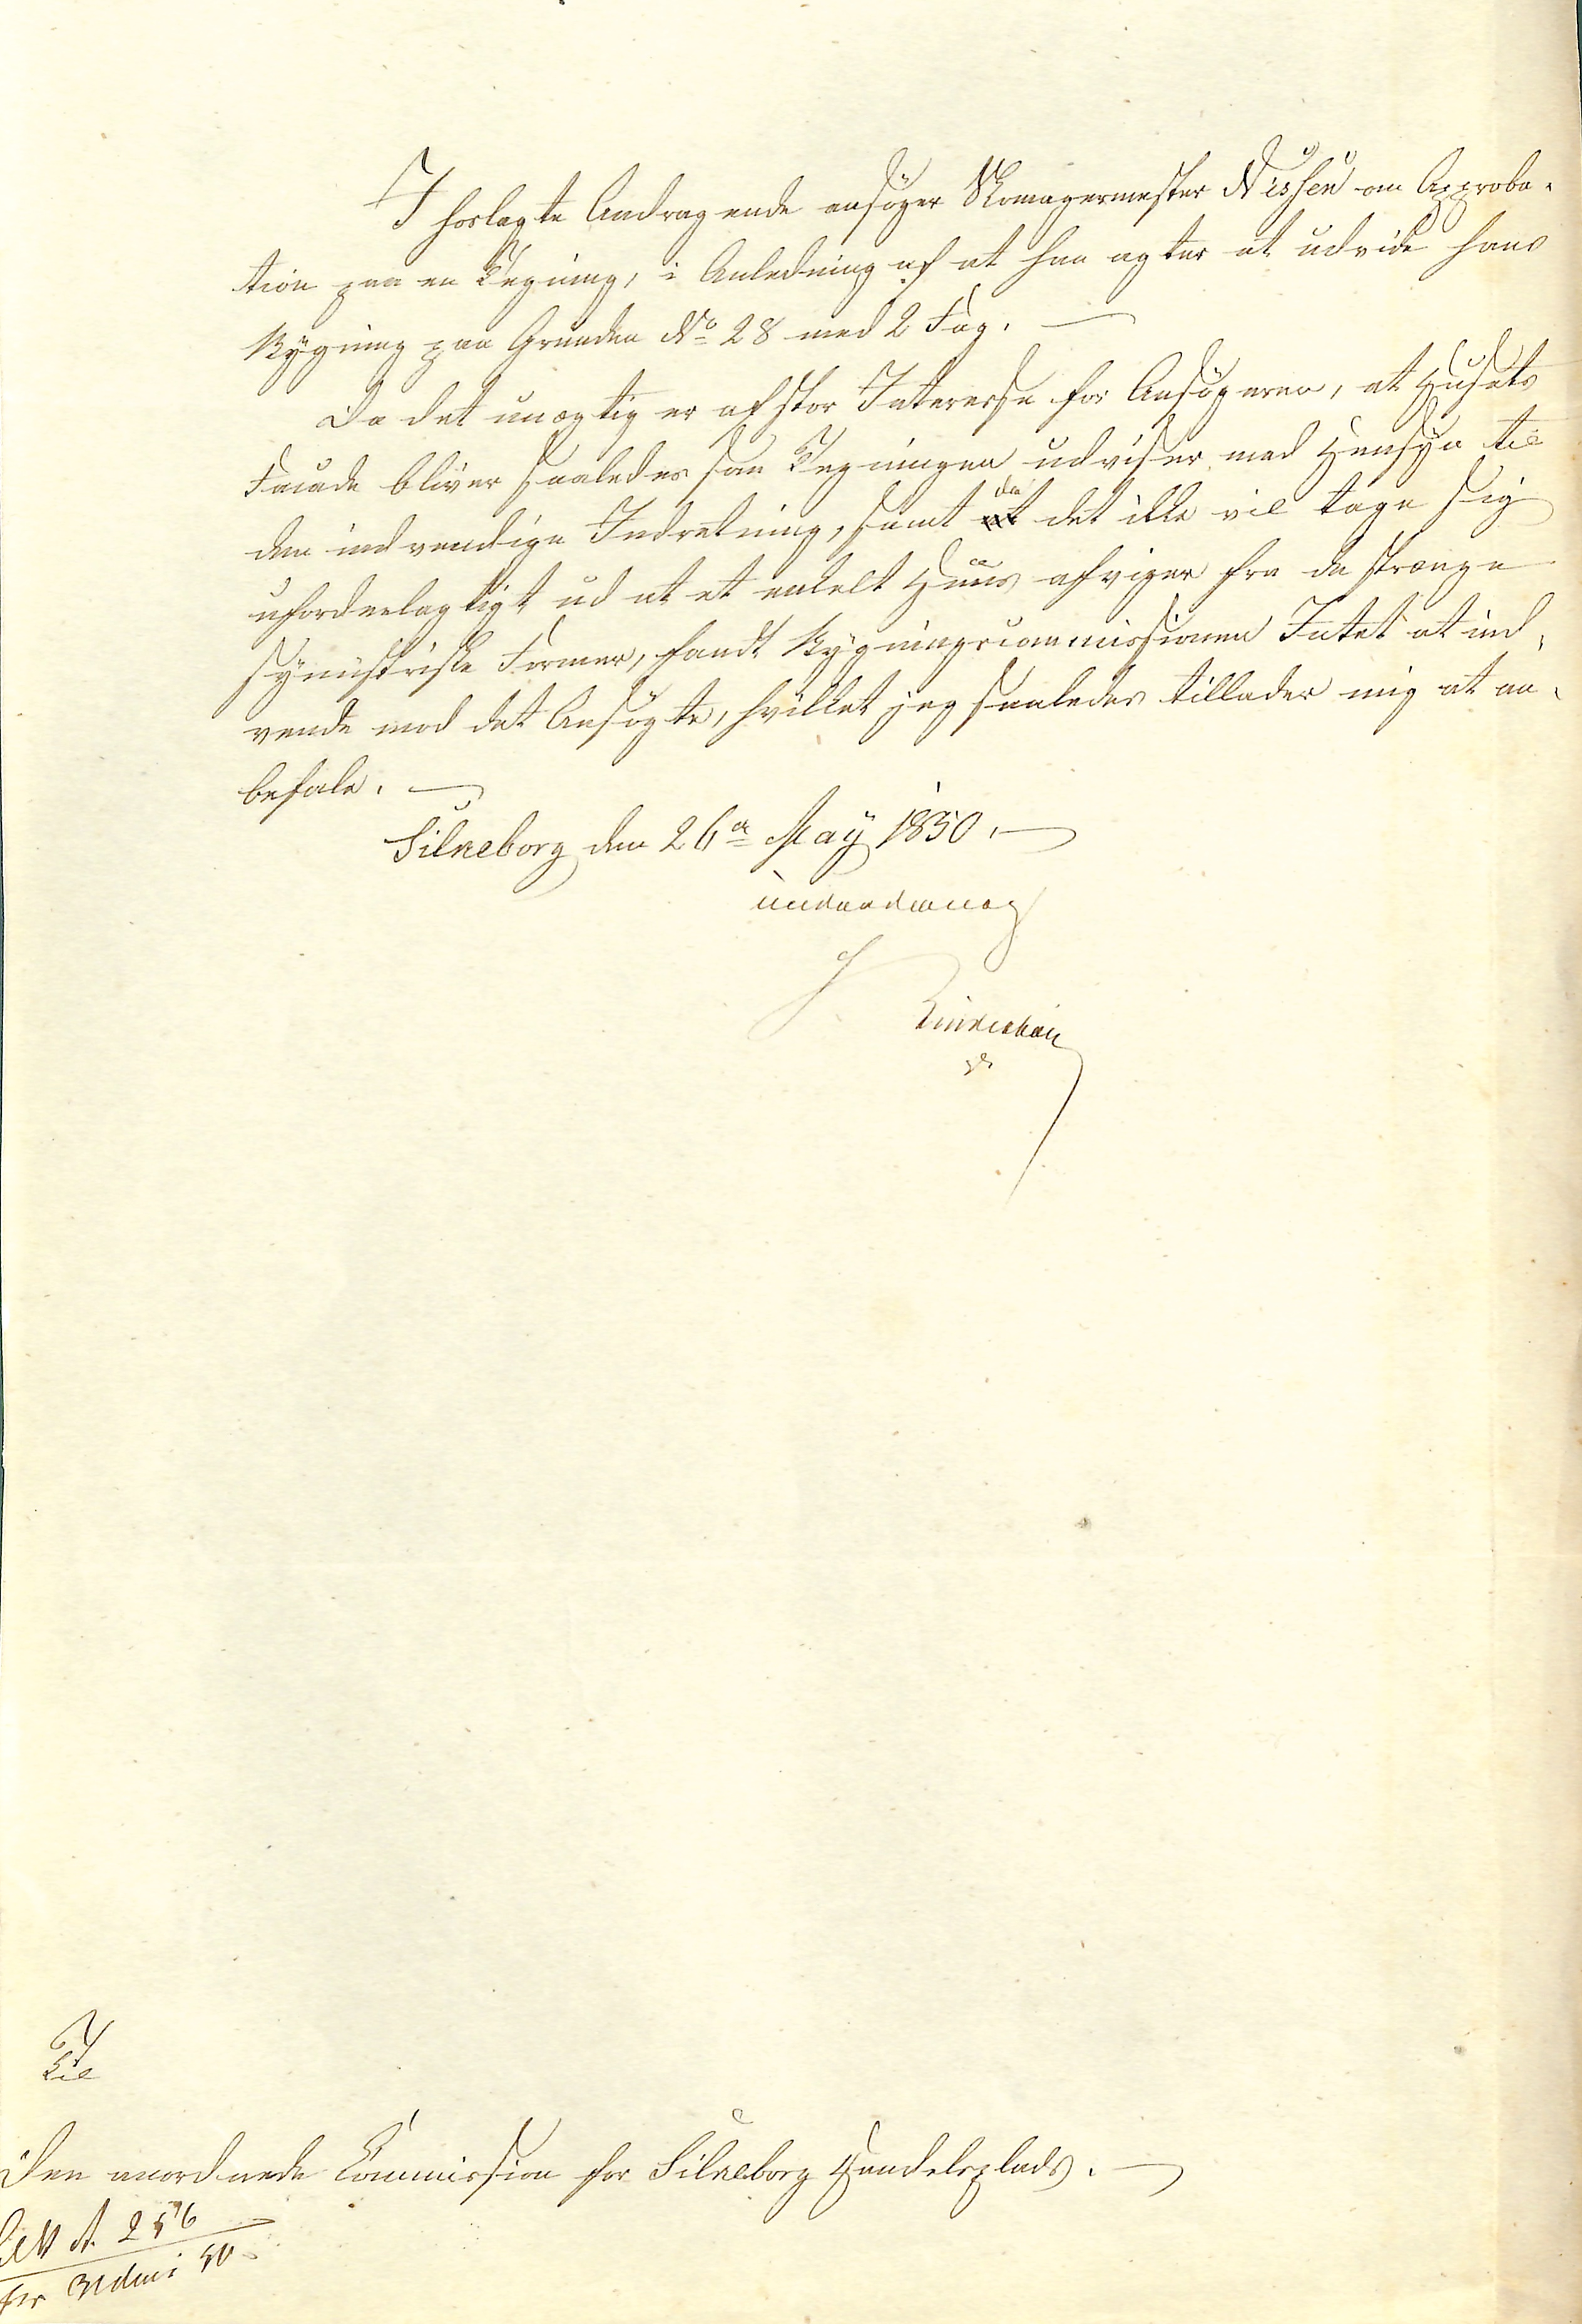 I hoslagte Andragende ansøger Skomagermester Nissen om Approba-
tion paa en Tegning, i Anledning af at han agter at udvide hans
Bygning paa Grunden No 28 med 2 Fag. —
Da det unægtig er af stor Interesse for Ansøgeren, at Husets
Facade bliver saaledes som Tegningen udviser med Hensyn til
den indvendige Indretning, samt da det ikke vil tage sig
ufordeelagtigt ud at et enkelt Huus afviger fra de strænge
symetriske Former, fandt Bygningscommissionen Intet at ind-
vende mod det Ansøgte, hvilket jeg saaledes tillader mig at an-
befale. —
Silkeborg den 26de May 1850. —
underdanig
Til
Den anordnede Commission for Silkeborg Handelsplads. —